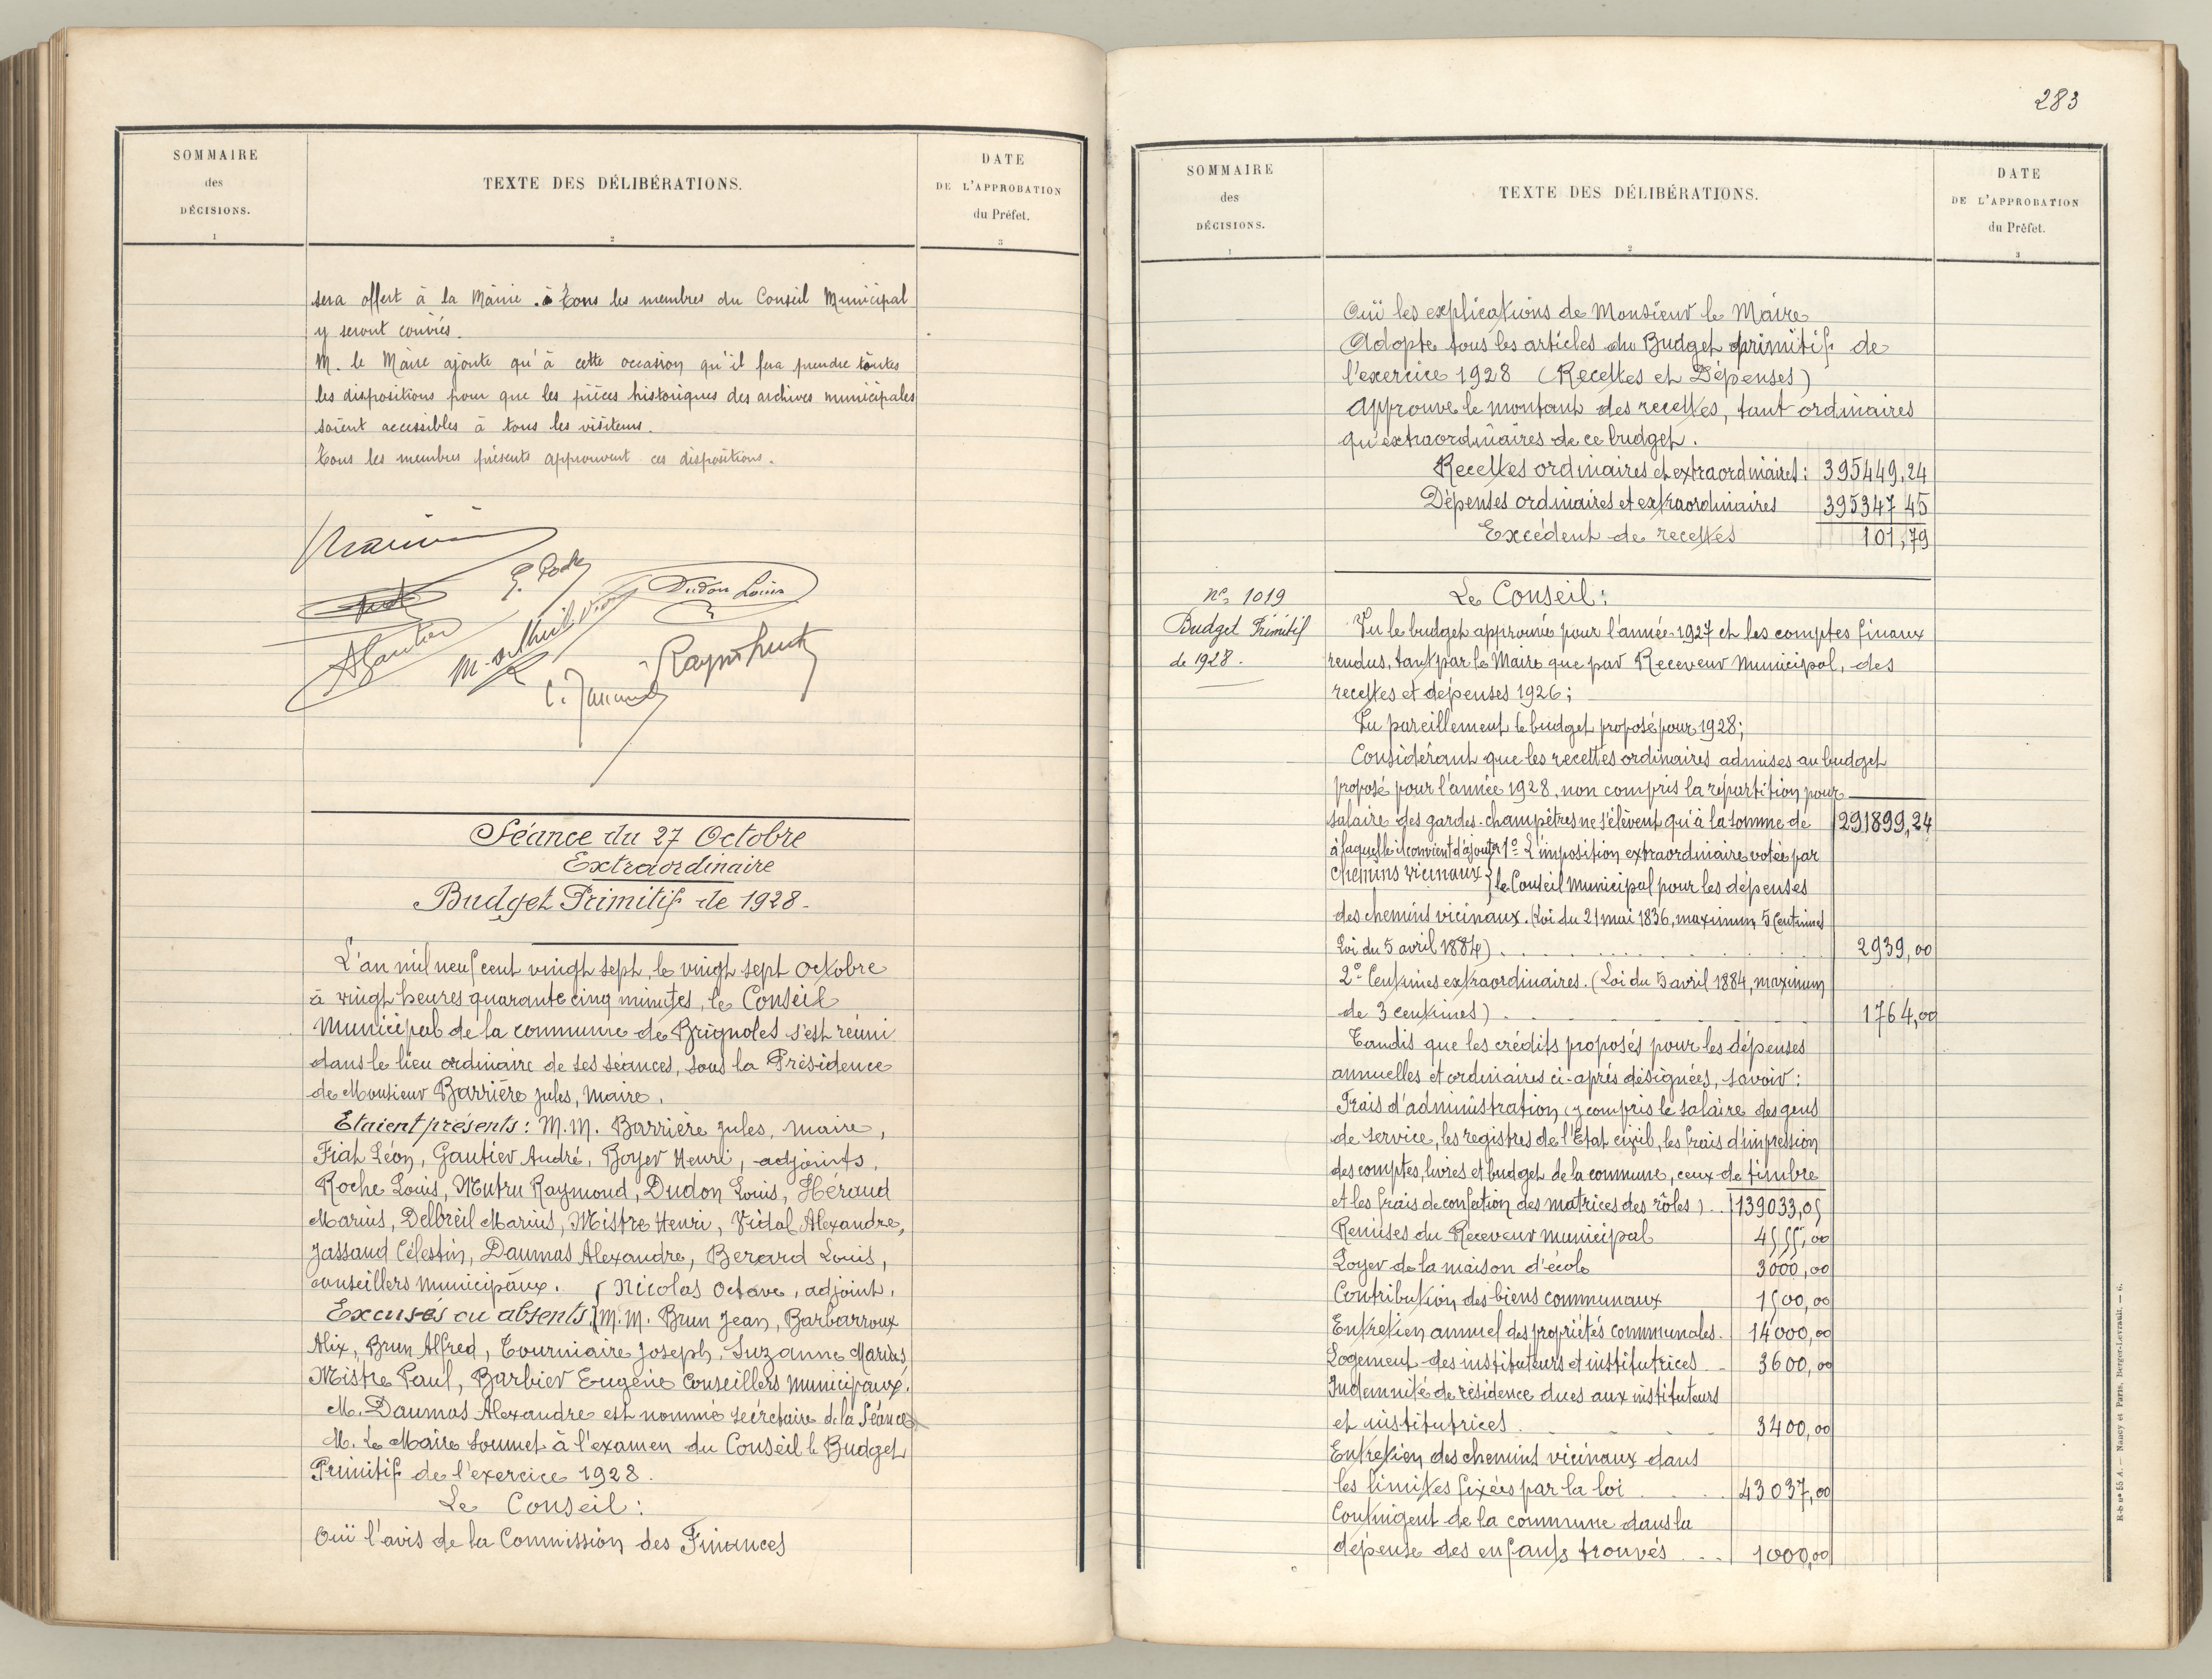 SOMMAIRE
des
DÉCISIONS.
1
TEXTE DES DÉLIBÉRATIONS.
2
DATE
DE L'APPROBATION
du Préfet.
3
sera offert à la Mairie. à Tous les membres du Conseil Municipal
y seront conviés.
M. le Maire ajoute qu'à cette occasion qu'il fera prendre toutes
les dispositions pour que les pièces historiques des archives municipales
soient accessibles à tous les visiteurs.
Tous les membres présents approuvent ces dispositions.
Dudon Louis
AGautier
Séance du 27 Octobre
Extraordinaire
Budget Primitif de 1928.
L'an mil neuf cent vingt sept, le vingt sept Octobre
à vingt heures quarante cinq minutes, le Conseil
Municipal de la commune de Brignoles s'est réuni
dans le lieu ordinaire de ses séances, sous la Présidence
de Monsieur Barrière Jules, Maire.
Etaient présents : M.M. Barrière Jules, Maire,
Fiat Léon, Gautier André, Boyer Henri, adjoints,
Roche Louis, Mutru Raymond, Dudon Louis, Héraud
Marius, Delbreil Marius, Mistre Henri, Vidal Alexandre,
Jassaud Célestin, Daumas Alexandre, Berard Louis,
conseillers municipaux. Nicolas Octave, adjoint.
Excusés ou absents M.M. Brun Jean, Barbarroux
Alix, Brun Alfred, Tourniaire Joseph, Suzanne Marius,
Mistre Paul, Barbier Eugène Conseillers municipaux.
M. Daumas Alexandre est nommé secrétaire de la Séance
M. Le Maire soumet à l'examen du Conseil le Budget
Primitif de l'exercice 1928.
Le Conseil :
Ouï l'avis de la Commission des Finances
283
SOMMAIRE
des
DÉCISIONS.
1
TEXTE DES DÉLIBÉRATIONS.
2
DATE
DE L'APPROBATION
du Préfet.
3
Ouï les explications de Monsieur le Maire
Adopte tous les articles du Budget primitif de
l'exercice 1928 (Recettes et Dépenses)
Approuve le montant des recettes, tant ordinaires
qu'extraordinaires de ce budget.
Recettes ordinaires et extraordinaires : 395449,24
Dépenses ordinaires et extraordinaires 395347 45
Excédent de recettes 101,79
N° 1019
Budget Primitif
de 1928.
Le Conseil :
Vu le budget approuvé pour l'année 1927 et les comptes finaux
rendus, tant par le Maire que par Receveur Municipal, des
recettes et dépenses 1926 ;
Vu pareillement le budget proposé pour 1928 ;
Considérant que les recettes ordinaires admises au budget
proposé pour l'année 1928, non compris la répartition pour
salaire des gardes-champêtres ne s'élèvent qu'à la somme de 291899,24
à laquelle il convient d'ajouter 1° L'imposition extraordinaire votée par
chemins vicinaux } le Conseil Municipal pour les dépenses
des chemins vicinaux. (Loi du 21 mai 1836, maximum 5 Centimes
Loi du 5 avril 1884) 2939,00
2° Centimes extraordinaires. (Loi du 5 avril 1884, maximum
de 3 centimes) 1764,00
Tandis que les crédits proposés pour les dépenses
annuelles et ordinaires ci-après désignées, savoir :
Frais d'administration (y compris le salaire des gens
de service, les registres de l'Etat civil, les frais d'impression
des comptes, livres et budget de la commune, ceux de timbre
et les frais de confection des matrices des rôles) 139033,05
Remises du Receveur municipal 4555,00
Loyer de la maison d'école 3000,00
Contribution des biens communaux 1500,00
Entretien annuel des propriétés communales. 14000,00
Logement des instituteurs et institutrices 3600,00
Indemnité de résidence dues aux instituteurs
et institutrices 3400,00
Entretien des chemins vicinaux dans
les limites fixées par la loi 43037,00
Contingent de la commune dans la
dépense des enfants trouvés 1000,00
R-b n° 55 A. — Nancy et Paris, Berger-Levrault. — 6.